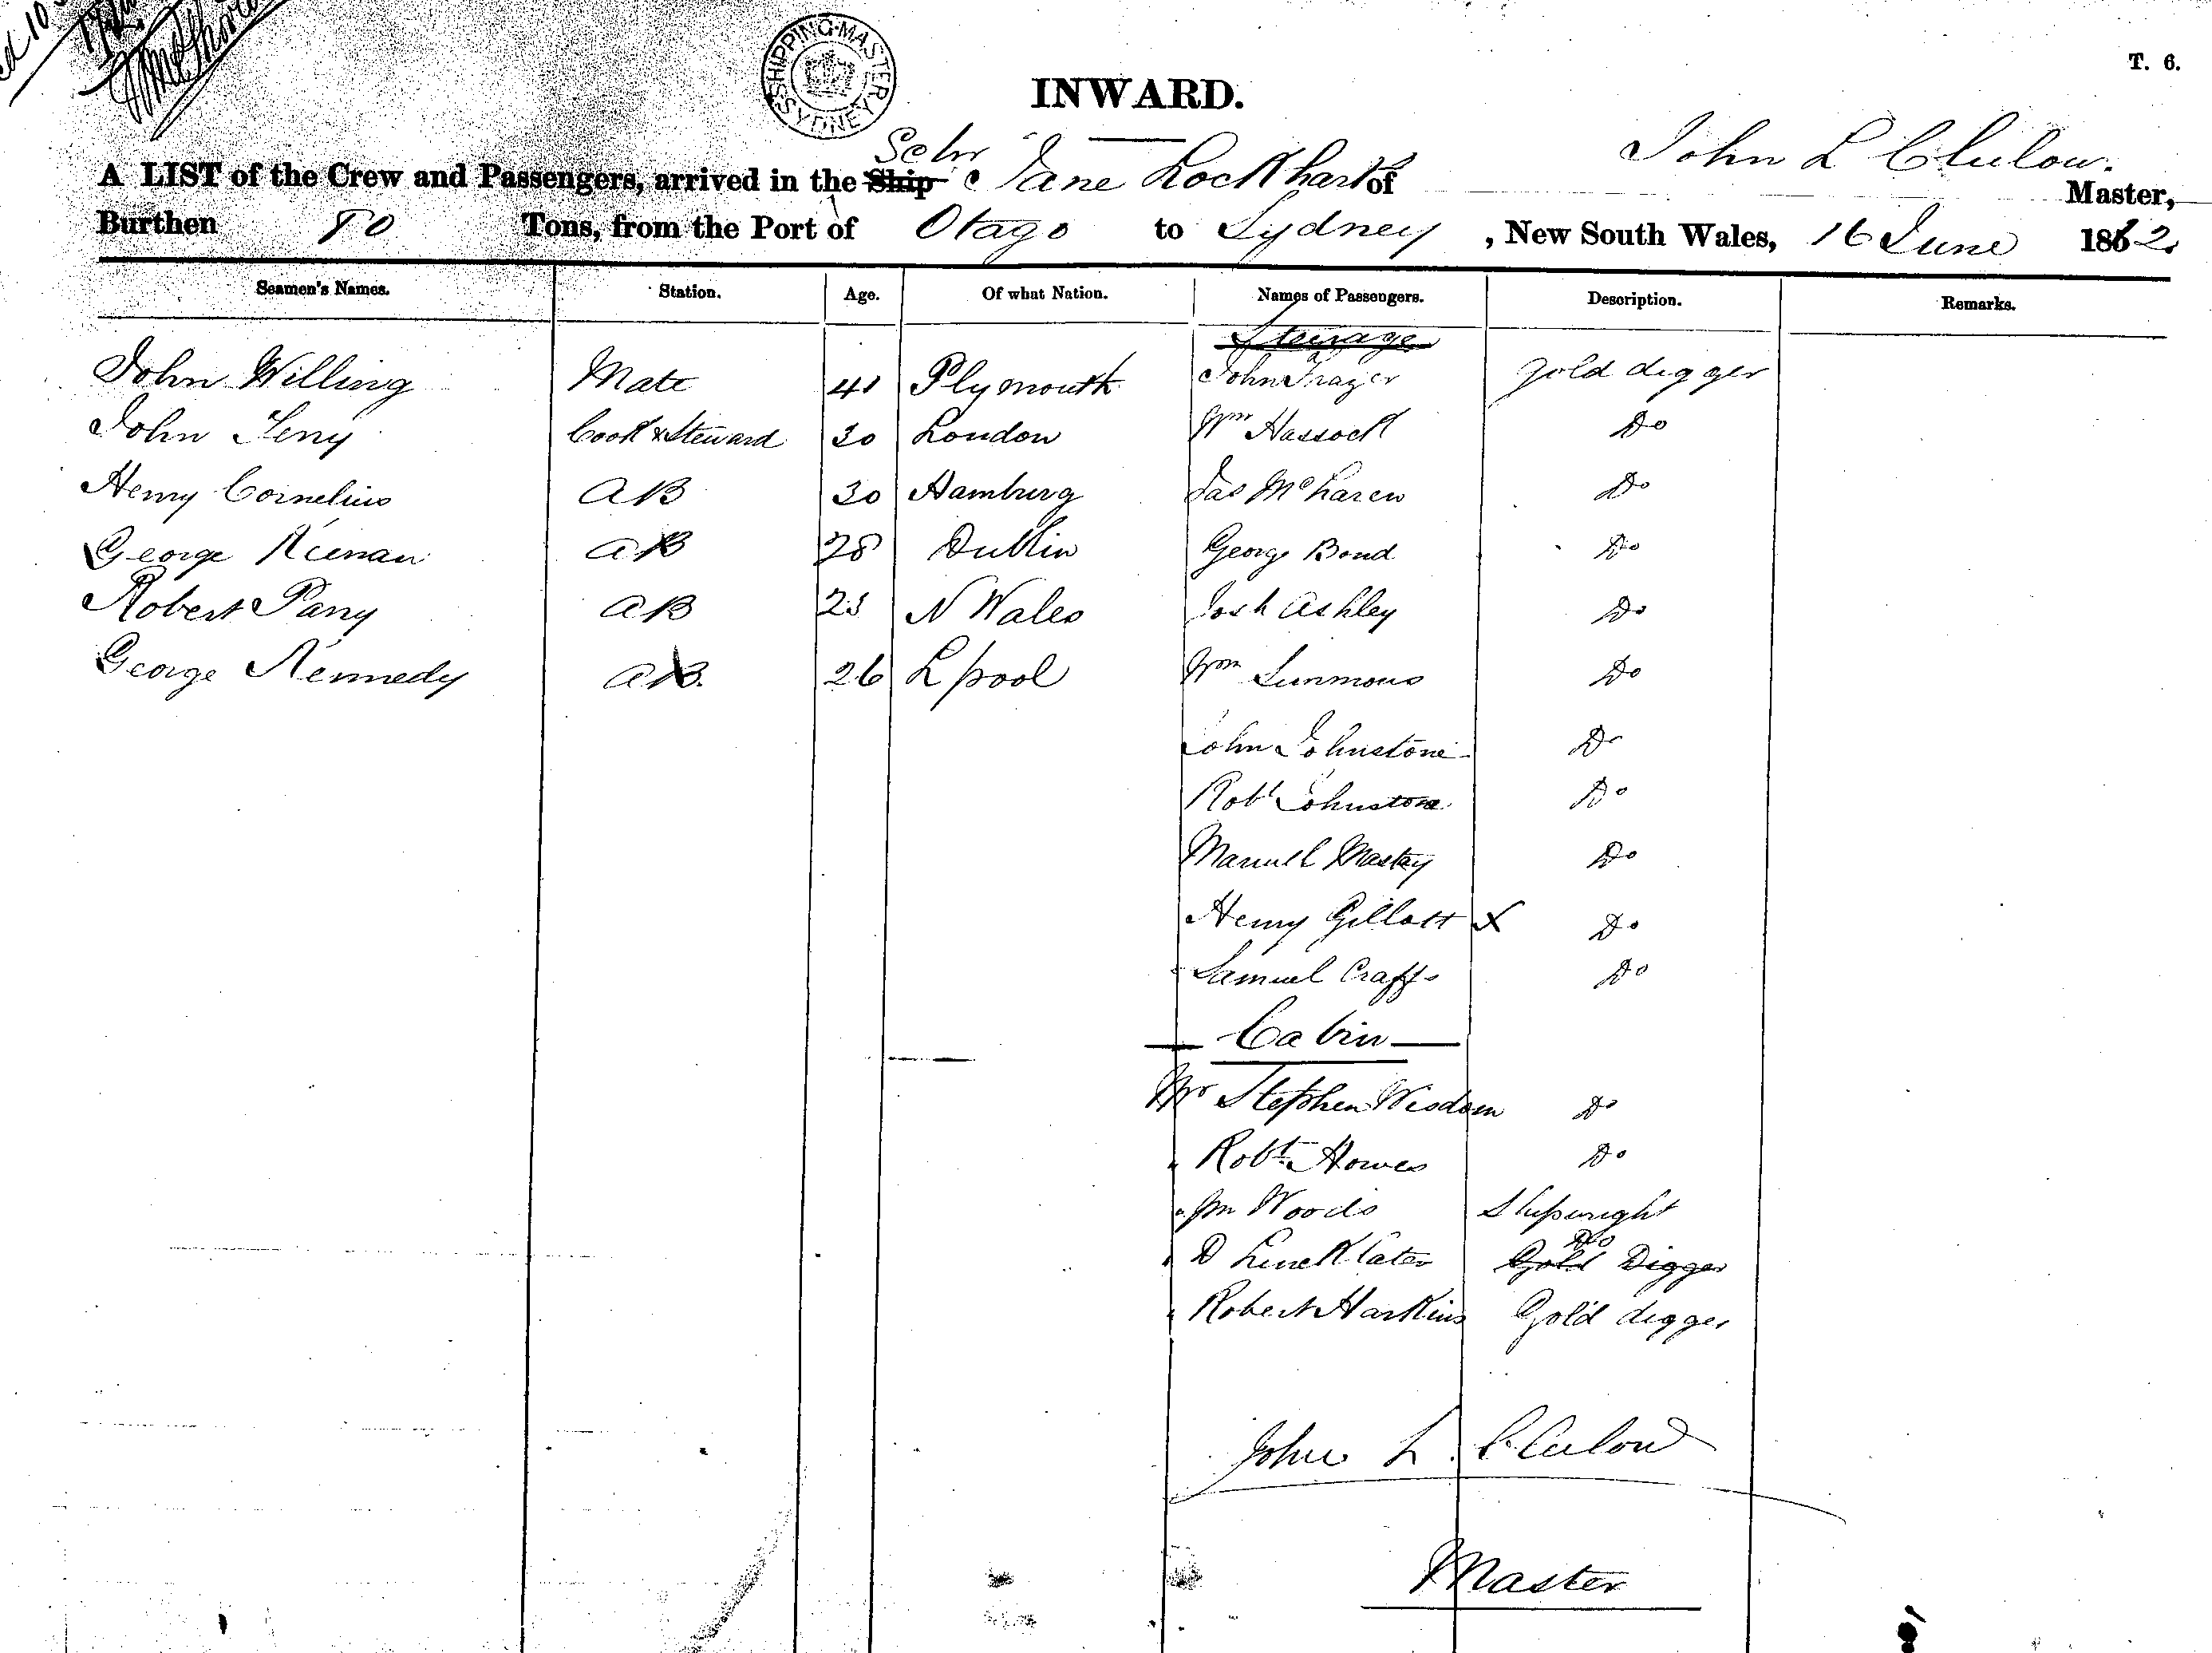 SHIPPING MASTER SYDNEY
T. 6.
INWARD.
Schr
A LIST of the Crew and Passengers, arrived in the Ship Jane Lockhart of John L Clulow. Master,
Burthen 80 Tons, from the Port of Otago to Sydney, New South Wales, 16 June 1862.
Seamen's Names. Station. Age. Of what Nation. Names of Passengers. Description. Remarks.
Steerage
John Willing Mate 41 Plymouth John Frazer gold digger
John Cook & Steward 30 London Wm Hassock Do
Henry Cornelius AB 30 Hamburg Jas McLaren Do
George Kienan AB 28 Dublin George Bond Do
Robert Parry AB 25 N Wales Josh Ashley Do
George Kennedy AB. 26 Lpool Wm Do
John Johnstone Do
Robt Johnstone Do
Manuel Do
Henry Gillott X Do
Samuel Do
Cabin
Mr Stephen Wisdom Do
" Robt Howes Do
" Wm Woods Shipwright
Do
" D Lincklater Gold Digger
" Robert Harkins Gold digger
John L. Clulow
Master